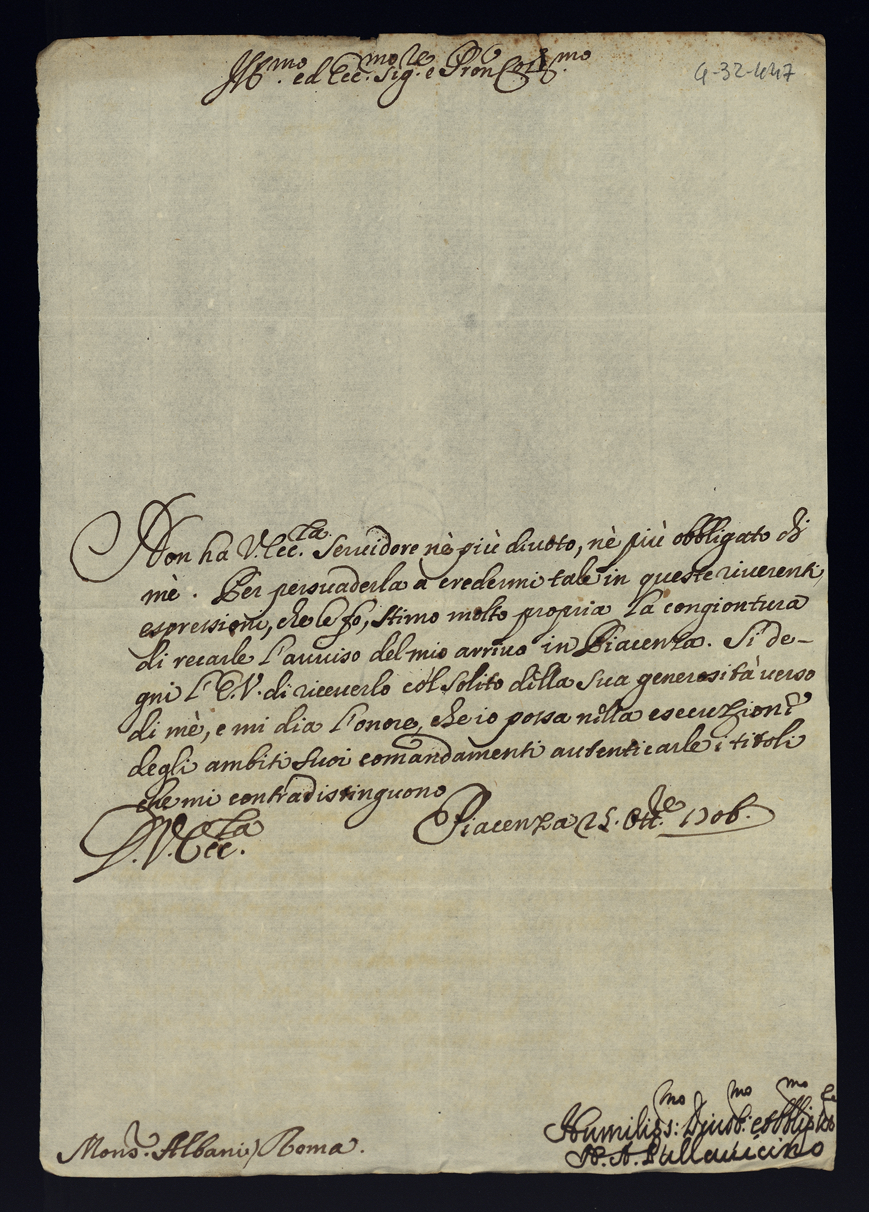 Ill.mo ed Ecc.mo Sig.re e Pron Col.mo
4-32-447
Non ha V. Ecc.za Servidore nè più divoto, nè più obbligato di
mè. Per persuaderla à credermi tale in queste riverenti
espressioni, che le fo, stimo molto propria la congiontura
di recarle l'avviso del mio arrivo in Piacenza. Si de-
gni l'E.V. di riceverlo col solito della sua generosità verso
di mè, e mi dia l'onore, che io possa nella esecuzione
degli ambiti suoi comandamenti autenticarle i titoli
che mi contradistinguono
Piacenza 25. Ott.re 1706.
D. V. Ecc.za
Humiliss:mo Divot:mo e obblig.mo
A. Pallavicino
Mons.r Albani / Roma.